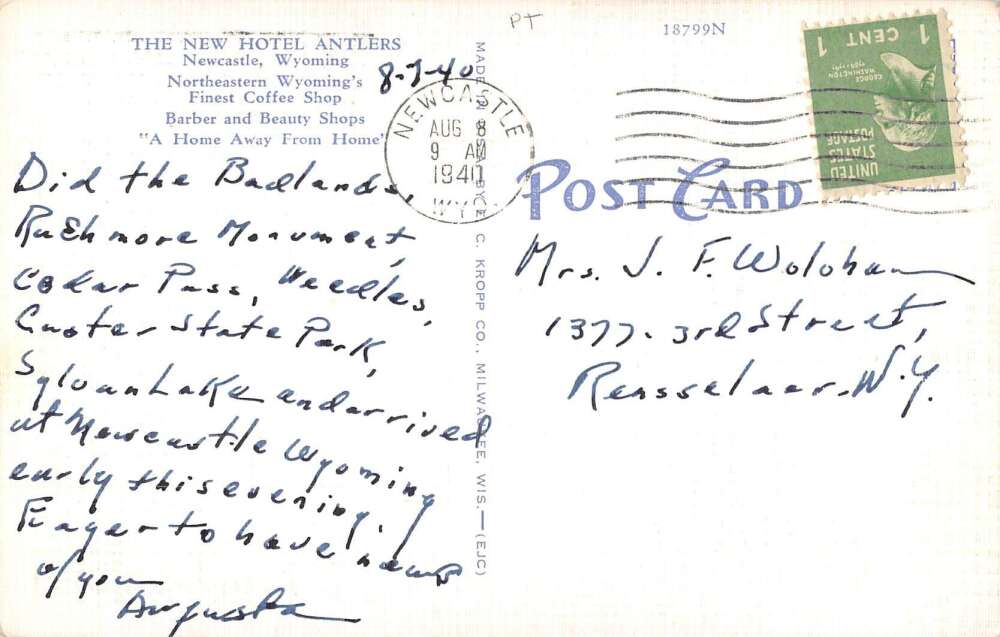 PT
18799N
THE NEW HOTEL ANTLERS
Newcastle, Wyoming
Northeastern Wyoming's
Finest Coffee Shop
Barber and Beauty Shops
"A Home Away From Home"
8-7-40
NEWCASTLE
AUG 8
9 AM
1940
WYO.
1 CENT 1
GEORGE WASHINGTON
UNITED
STATES
POSTAGE
POST CARD
MADE BY E. C. KROPP CO., MILWAUKEE, WIS.—(EJC)
Did the Badlands,
Rushmore Monument,
Cedar Pass, Needles,
Custer State Park,
Sylvan Lake and arrived
at Newcastle Wyoming
early this evening.
Eager to have news
of you
Augusta
Mrs. J. F. Wolohan
1377-3rd Street,
Rensselaer-N.Y.